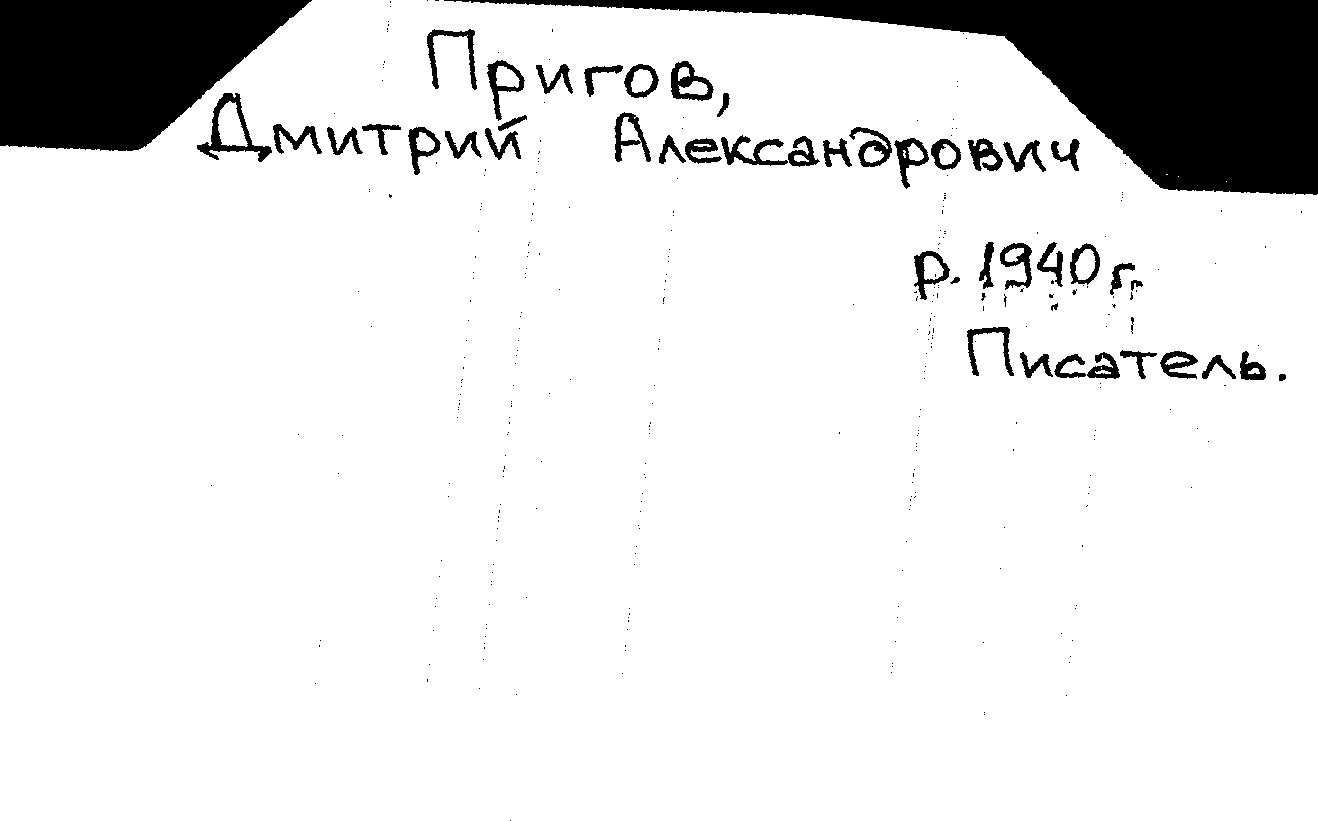 Пригов,
Дмитрий Александрович
р. 1940 г.
Писатель.